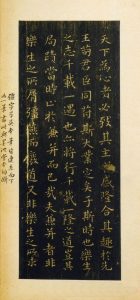 天下為心者必致其主於盛隆合其趣於先
王苟君臣同符斯大業定矣于斯時也樂生
之志千載一遇也亦將行千載一隆之道豈其
局蹟當時止於兼并而已哉夫兼并者非
樂生之所屑強燕而廢道又非樂生之所求